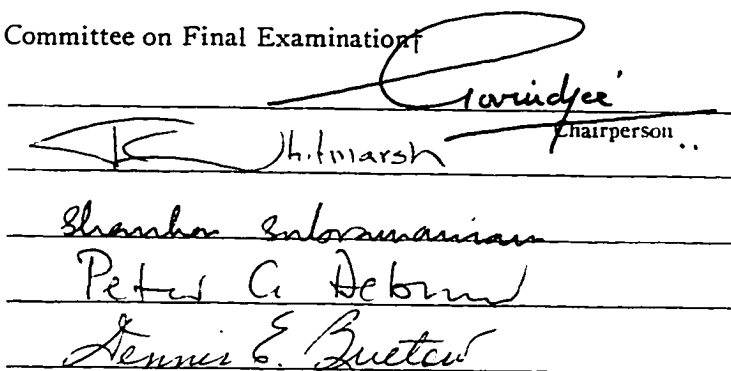 Committee on Final Examination†
Govindjee
Chairperson
Whitmarsh
Shankar Subramaniam
Peter G Debrunner
Dennis E. Buetow